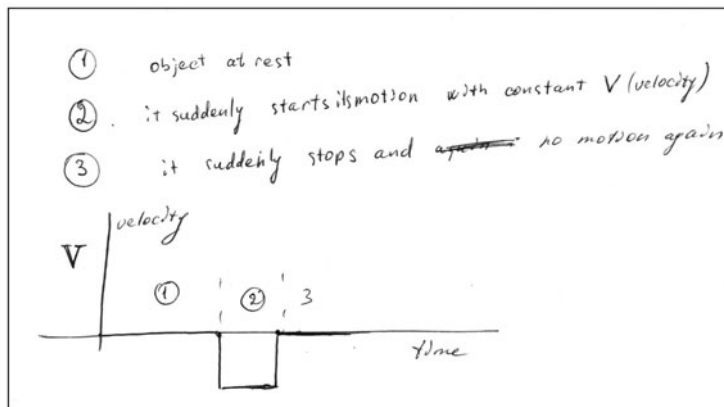 ① object at rest
② . it suddenly starts its motion with constant V (velocity)
③ it suddenly stops and no motion again
velocity
V
① ② 3
time